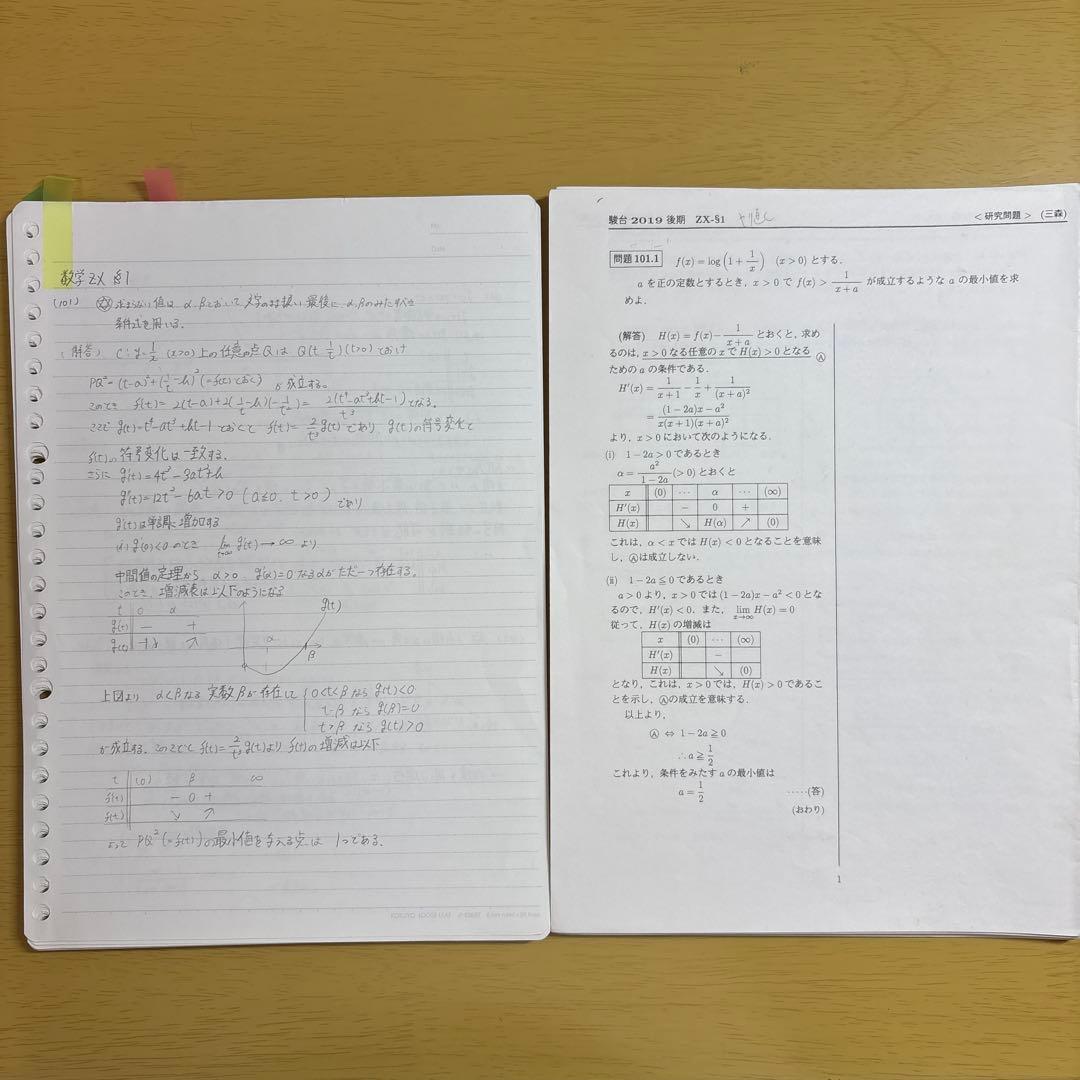 No.
Date
数学ZX §1
(101) 求まらない値は α, βとおいて, 文字のまま扱い 最後に, α, βのみたすべき
条件式を用いる.
(解答) C: y=1/x (x>0) 上の任意の点Qは Q(t, 1/t) (t>0) とおけ
PQ²=(t-a)²+(1/t-b)² (=f(t)とおく) が成立する。
このとき f'(t)= 2(t-a)+2(1/t-b)(-1/t²)= 2(t⁴-at³+bt-1)/t³ となる.
ここで g(t)=t⁴-at³+bt-1 とおくと f'(t)=2/t³ g(t) であり, g(t)の符号変化と
f'(t)の符号変化は一致する.
さらに g'(t)=4t³-3at²+b
g''(t)=12t²-6at>0 (a≦0, t>0) であり
g'(t)は単調に増加する
(i) g'(0)<0 のとき lim t→∞ g'(t)→∞ より
中間値の定理から, α>0, g'(α)=0 なるαがただ一つ存在する.
このとき, 増減表は以下のようになる
t 0 α
g'(t) − +
g(t) ↘ ↗
g(t)
α
β
上図より α<βなる 実数βが存在して 0<t<β なら g(t)<0
t=β なら g(β)=0
t>β なら g(t)>0
が成立する. このことと f'(t)=2/t³ g(t)より f(t)の増減は以下
t (0) β ∞
f'(t) − 0 +
f(t) ↘ ↗
よって PQ²(=f(t))の最小値を与える点は 1つである.
駿台 2019 後期 ZX-§1 やり直し <研究問題> (三森)
問題 101.1 f(x) = log(1 + 1/x) (x > 0) とする.
a を正の定数とするとき, x > 0 で f(x) > 1/(x+a) が成立するような a の最小値を求
めよ.
(解答) H(x) = f(x) − 1/(x+a) とおくと, 求め
るのは, x > 0 なる任意の x で H(x) > 0 となる Ⓐ
ための a の条件である.
H'(x) = 1/(x+1) − 1/x + 1/(x+a)²
= ((1−2a)x − a²)/(x(x+1)(x+a)²)
より, x > 0 において次のようになる.
(i) 1 − 2a > 0 であるとき
α = a²/(1−2a) (> 0) とおくと
x (0) ⋯ α ⋯ (∞)
H'(x) − 0 +
H(x) ↘ H(α) ↗ (0)
これは, α < x では H(x) < 0 となることを意味
し, Ⓐは成立しない.
(ii) 1 − 2a ≦ 0 であるとき
a > 0 より, x > 0 では (1 − 2a)x − a² < 0 とな
るので, H'(x) < 0. また, lim x→∞ H(x) = 0
従って, H(x) の増減は
x (0) ⋯ (∞)
H'(x) −
H(x) ↘ (0)
となり, これは, x > 0 では, H(x) > 0 であるこ
とを示し, Ⓐの成立を意味する.
以上より,
Ⓐ ⇔ 1 − 2a ≧ 0
∴ a ≧ 1/2
これより, 条件をみたす a の最小値は
a = 1/2 ⋯⋯(答)
(おわり)
1